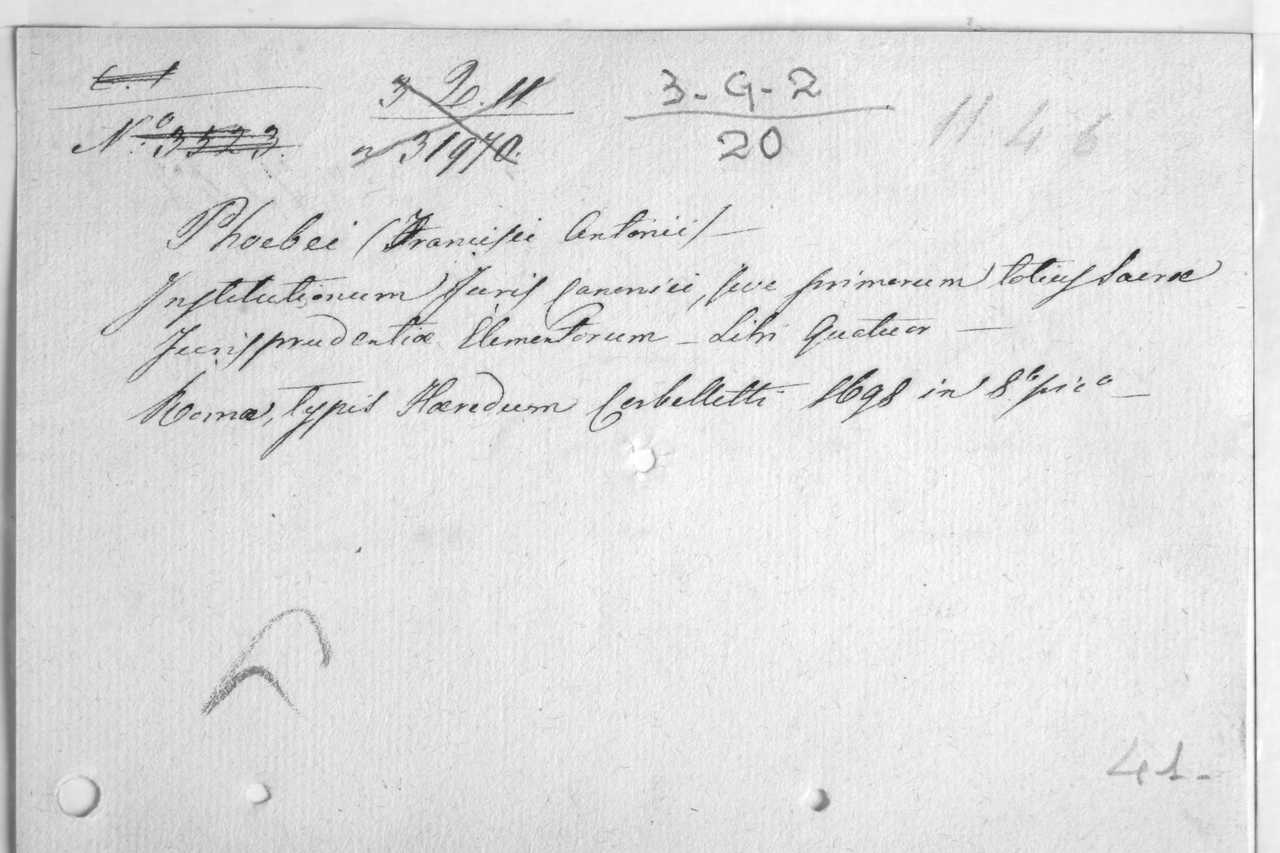 3-G-2
20
11 4 6
Nº 3523.
n 31970.
Phoebei (Francisci Antonii) —
Institutionum Juris Canonici, sive primorum totius Sacræ
Jurisprudentiæ Elementorum – Libri Quatuor —
Romæ, typis Hæredum Corbelletti 1698 in 8º pic.º —
41-